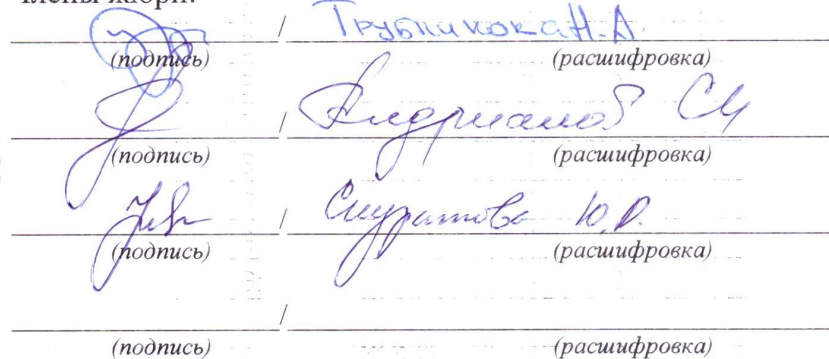 Члены жюри:
/ Трубникова Н.А.
(подпись) (расшифровка)
/ Андрианов СИ
(подпись) (расшифровка)
/ Скуратова Ю.Р.
(подпись) (расшифровка)
/
(подпись) (расшифровка)